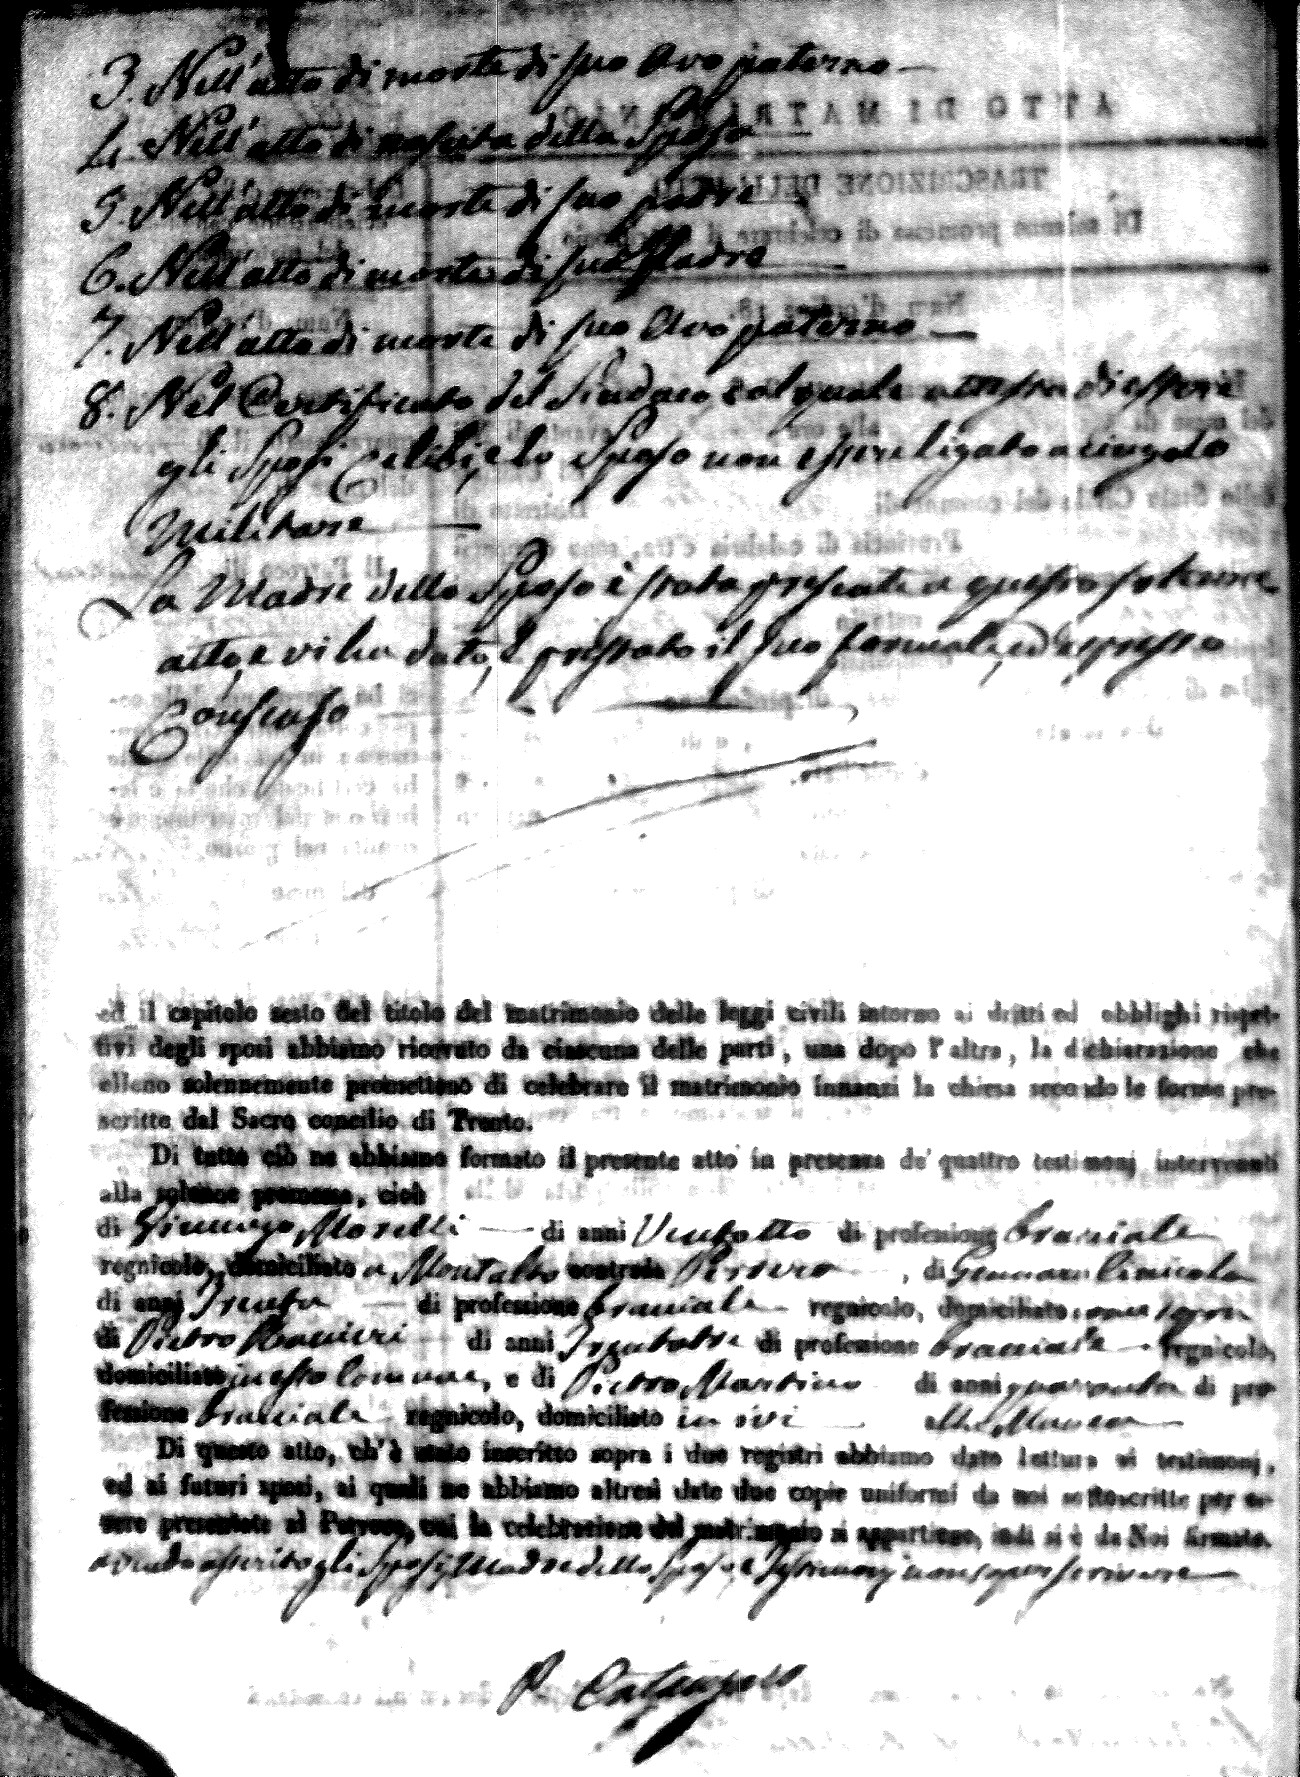 3. Nell'atto di morte di suo Avo paterno
4. Nell'atto di nascita della Sposa
5. Nell'atto di morte di suo padre
6. Nell'atto di morte di sua Madre
7. Nell'atto di morte di suo Avo paterno
8. Nel Certificato del Sindaco col quale attesta di essere
gli Sposi Celibi, e lo Sposo non essere ligato a cingolo
Militare
La Madre dello Sposo è stata presente a questo solenne
atto, e vi ha dato, e prestato il suo formale, ed espresso
Consenso
ed il capitolo sesto del titolo del matrimonio delle leggi civili intorno ai dritti ed obblighi rispet-
tivi degli sposi abbiamo ricevuto da ciascuna delle parti, una dopo l'altra, la dichiarazione che
elleno solennemente promettono di celebrare il matrimonio innanzi la chiesa secondo le forme pre-
scritte dal Sacro concilio di Trento.
Di tutto ciò ne abbiamo formato il presente atto in presenza de' quattro testimonj intervenuti
alla solenne promessa, cioè
di Morelli di anni Ventotto di professione bracciale
regnicolo, domiciliato a Montalto contrada , di Gennaro
di anni Trenta di professione bracciale regnicolo, domiciliato come sopra
di Pietro Ranieri di anni Trentatre di professione bracciale regnicolo,
domiciliato in esso Comune, e di Pietro Martino di anni quaranta di pro-
fessione bracciale regnicolo, domiciliato in ivi
Di questo atto, ch'è stato inscritto sopra i due registri abbiamo dato lettura ai testimonj,
ed ai futuri sposi, ai quali ne abbiamo altresì date due copie uniformi da noi sottoscritte per es-
sere presentate al Parroco, cui la celebrazione del matrimonio si appartiene, indi si è da Noi firmato.
avendo asserito gli Sposi, Madre dello Sposo, e Testimonj non saper scrivere